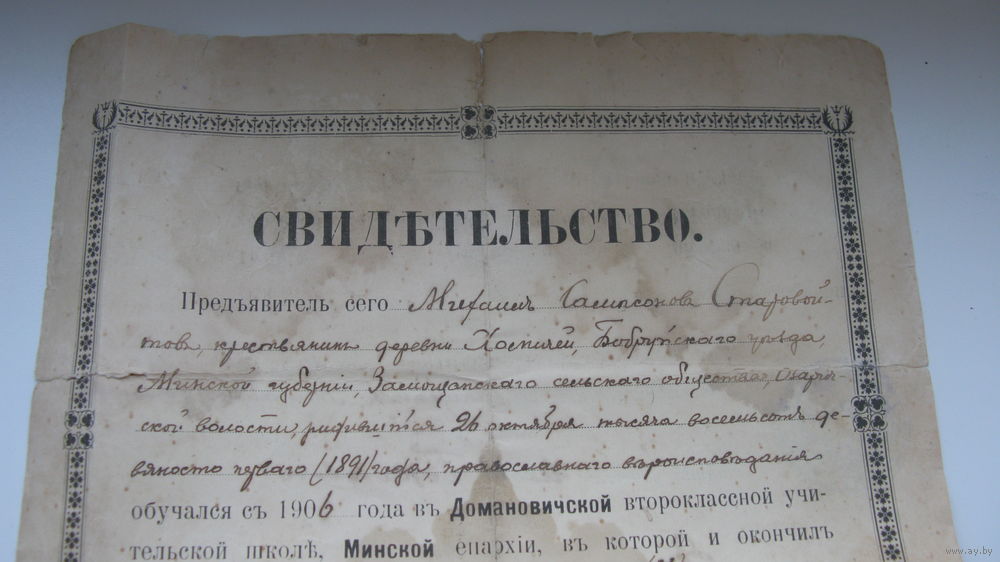 СВИДѢТЕЛЬСТВО.
Предъявитель сего Михаилъ Сампсоновъ Старовой-
товъ, крестьянинъ деревни Хоспилей, Бобруйскаго уѣзда,
Минской губерніи, Замощанскаго сельскаго общества,
ской волости, родившійся 26 октября тысяча восемьсотъ де-
вяносто перваго (1891) года, православнаго вѣроисповѣданія
обучался съ 1906 года въ Домановичской второклассной учи-
тельской школѣ, Минской епархіи, въ которой и окончилъ
www.ay.by